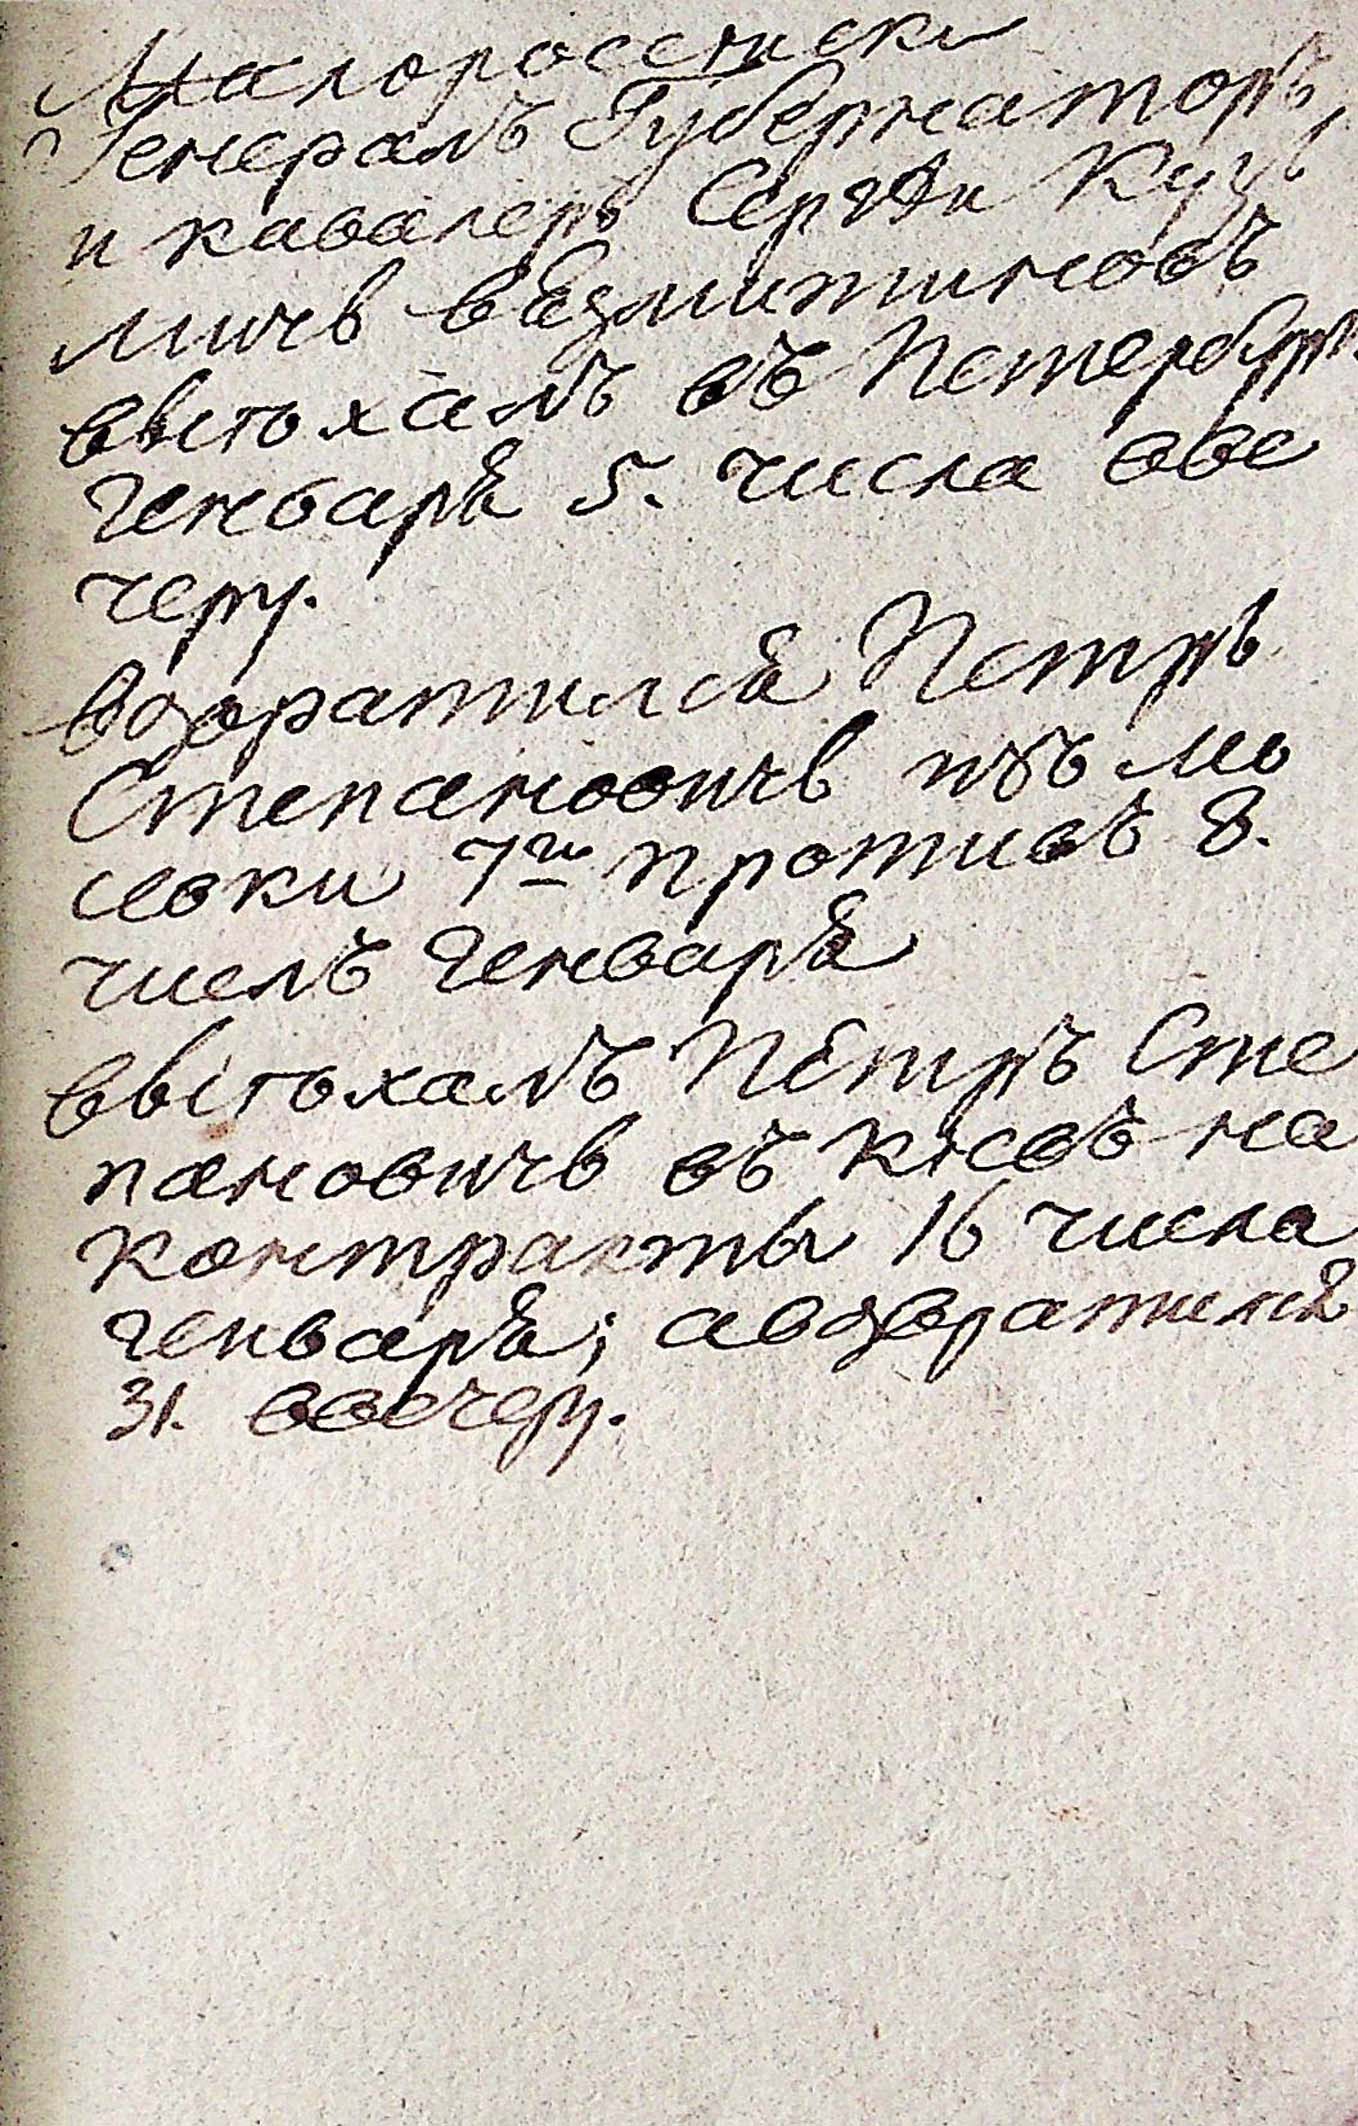 Малороссиски
Генералъ Губернаторъ,
и кавалеръ Сергѣи Кузь
мичь вѣзмитиновъ
выѣхалъ въ Петербургъ
генваря 5. числа вве
черу.
возвратился Петръ
Степановичь изъ мо
севки 7го противъ 8.
числъ генваря
выѣхалъ Петръ Сте
пановичь въ киевъ на
контракты 16 числа
генваря; авозвратился
31. ввечеру.